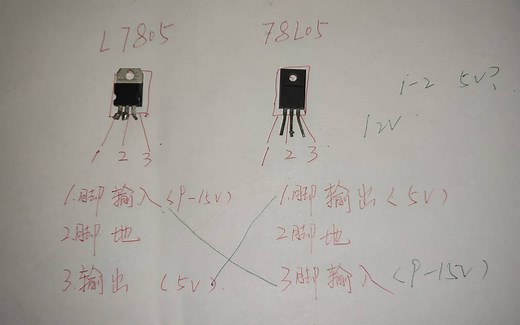 L7805
78L05
1-2 5V?
12V
1 2 3
1 2 3
1.脚输入(9-15V)
2.脚地
3.输出 (5V)
1.脚输出(5V)
2.脚地
3.脚输入(9-15V)